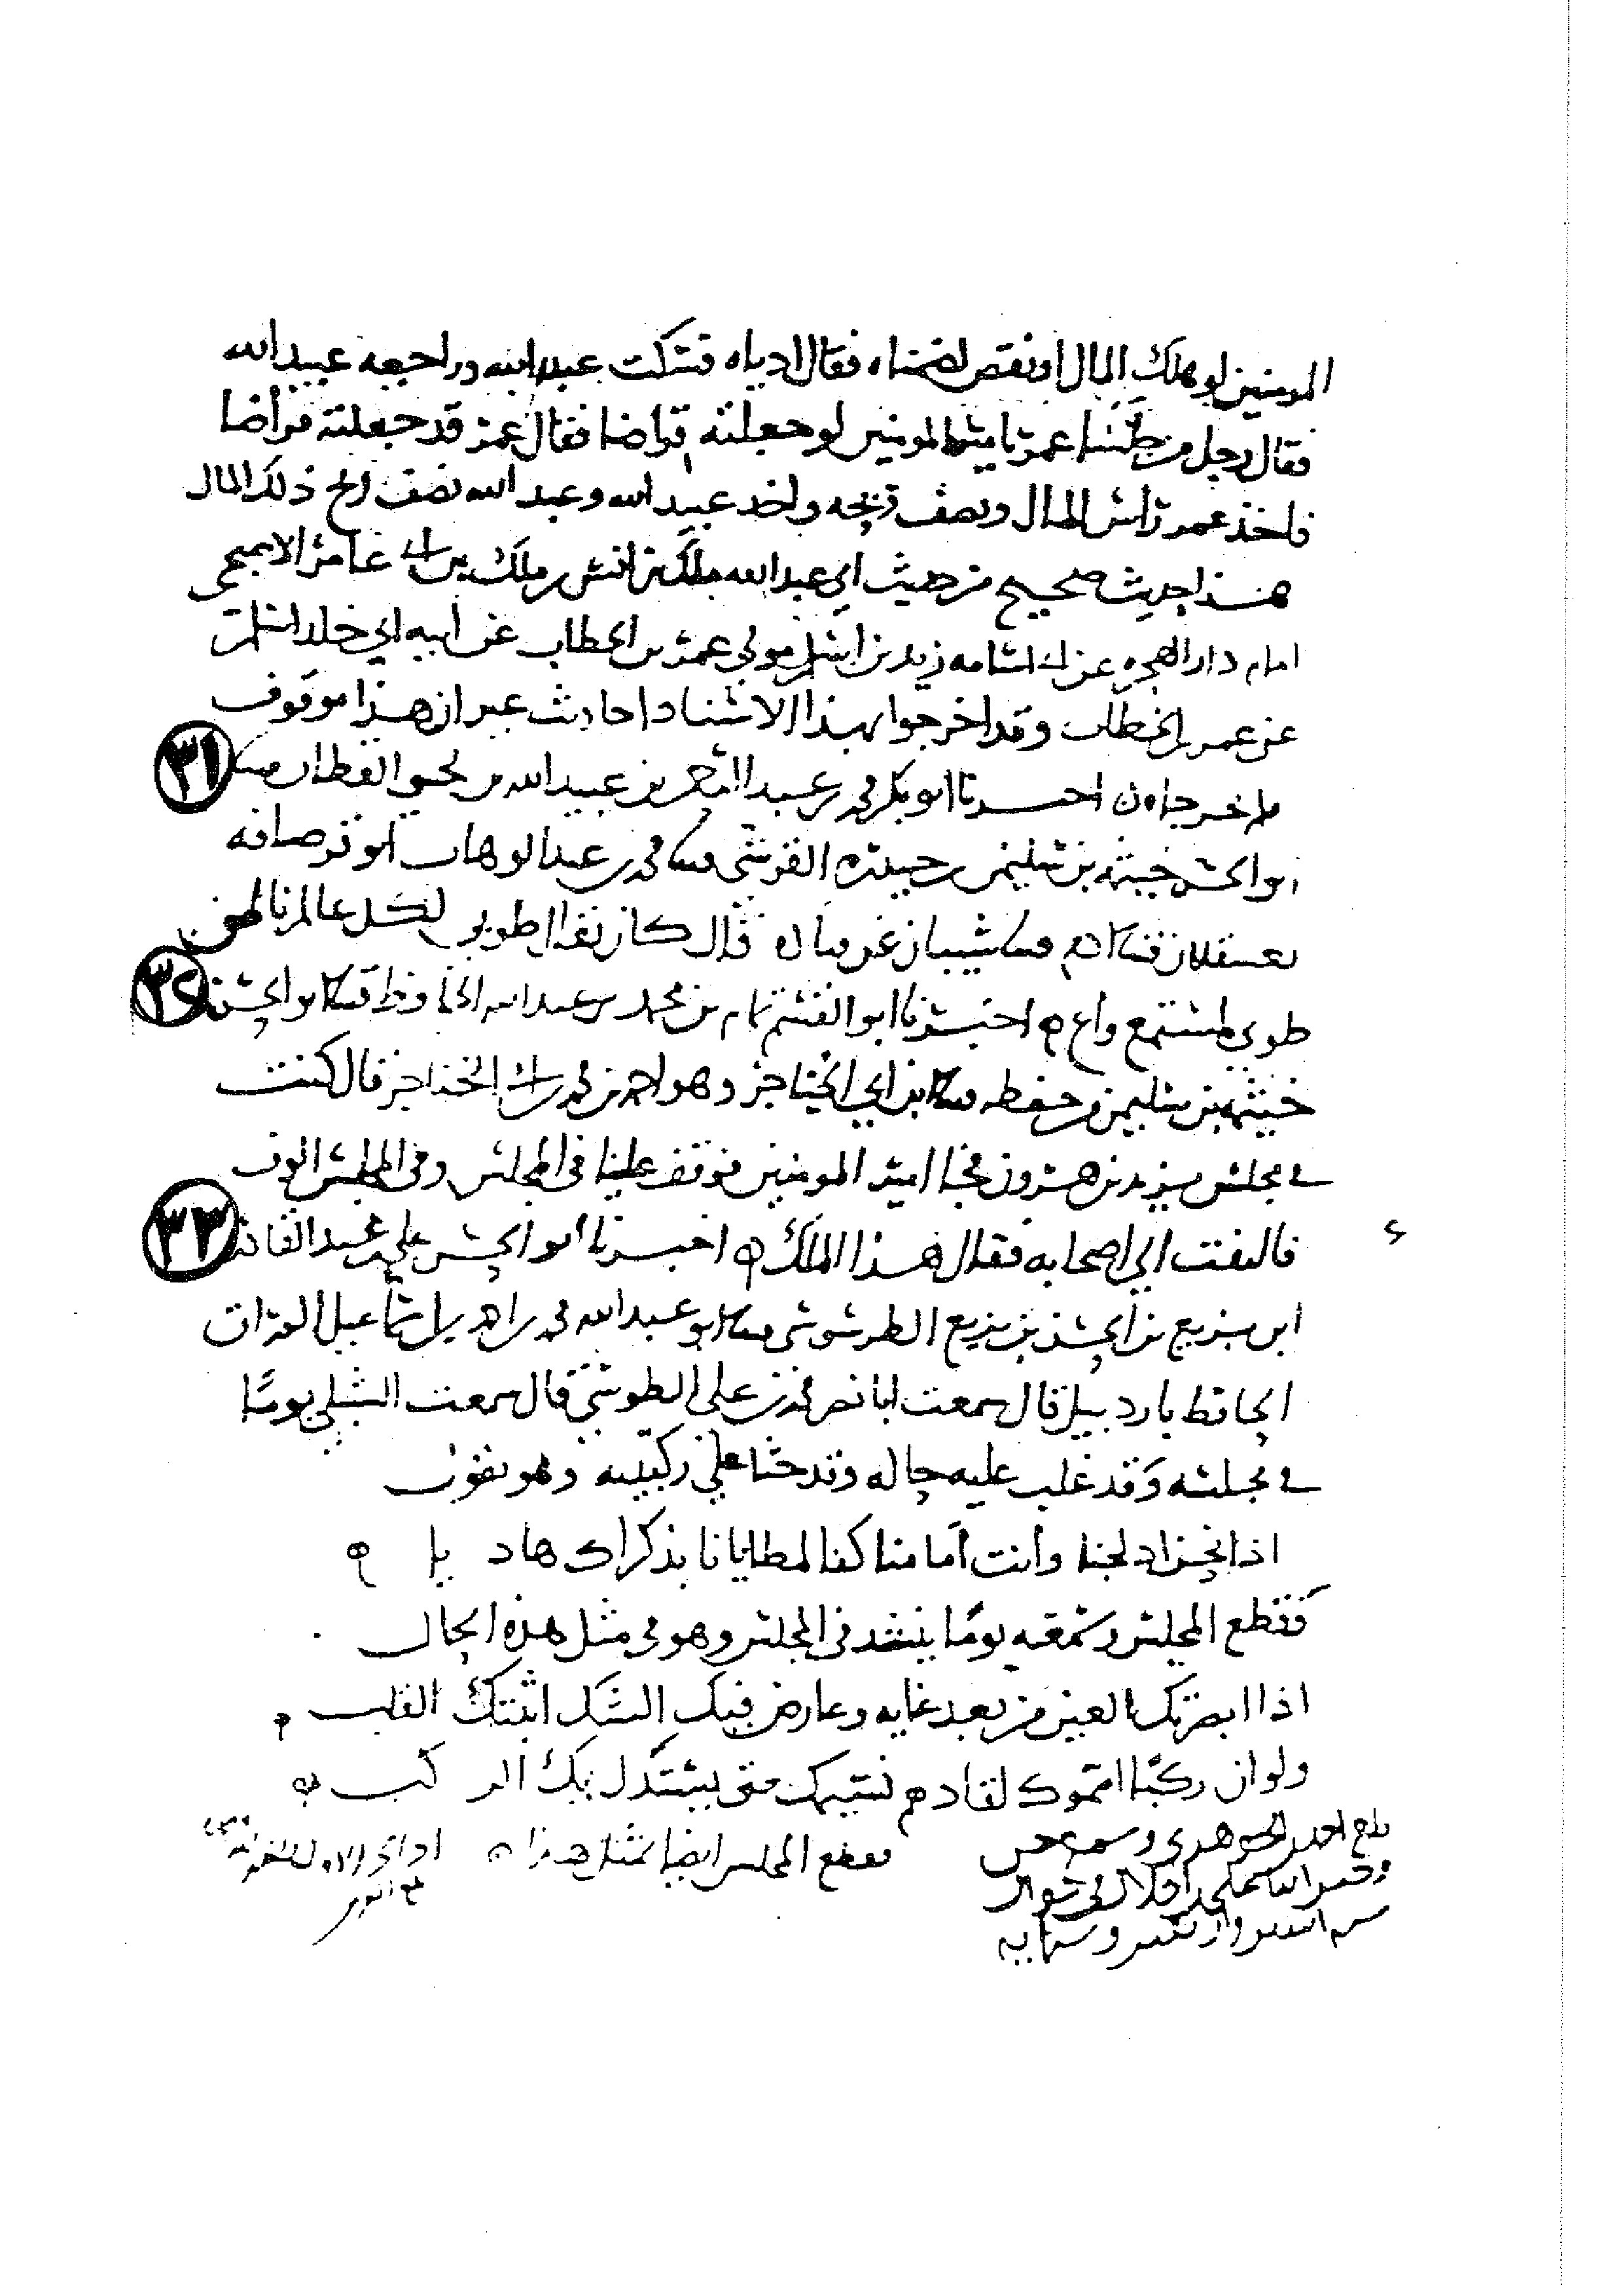 المومنين لو هلك المال او نقص لضمناه فقال ادياه فسكت عبد الله وراجعه عبيد الله
فقال رجل من جلسا عمر يا امير المومنين لو جعلته قراضا فقال عمر قد جعلته قراضا
فاخذ عمر راس المال ونصف ربحه واخذ عبيد الله وعبد الله نصف ربح ذلك المال
هذا حديث صحيح من حديث ابي عبد الله ملك بن انس بن ملك بن ابي عامر الاصبحي
امام دار الهجره عن ابي اسامه زيد بن اسلم مولى عمر بن الخطاب عن ابيه ابي خلد اسلم
عن عمر بن الخطاب وقد اخرجوا بهذا الاسناد احاديث غير ان هذا موقوف
لم يخرجاه اخبرنا ابو بكر محمد بن عبد الرحمن بن عبيد الله بن يحيى القطان
٣١
ابو الحسن خيثمه بن سليمن بن حيدره القرشي محمد بن عبد الوهاب ابو قرصافه
بعسقلان ادم شيبان عن قال كان يقال طوبى لكل عالم ناطق
طوبى لمستمع واع اخبرنا ابو القسم تمام بن محمد بن عبد الله الحافظ ابو الحسن
٣٢
خيثمه بن سليمن من حفظه ابن ابي الخناجر وهو احمد بن محمد بن ابي الخناجر قال كنت
في مجلس يزيد بن هرون فجا امير المومنين فوقف علينا في المجلس وفي المجلس الوف
فالتفت الى اصحابه فقال هذا الملك اخبرنا ابو الحسن علي بن عبد القادر
٣٣
ابن بزيع بن الحسن بن بزيع الطرسوسي ابو عبد الله محمد بن احمد بن اسماعيل
الحافظ باردبيل قال سمعت ابا نصر محمد بن علي الطوسي قال سمعت الشبلي يومًا
في مجلسه وقد غلب عليه حاله وقد جثا على ركبتيه وهو يقول
اذا نحن ادلجنا وانت امامنا كفا لمطايانا بذكراك هاديا
فقطع المجلس وسمعته يومًا ينشد في المجلس وهو في مثل هذه الحال
اذا ابصرتك العين من بعد غايه وعارض فيك الشك اثبتك القلب
ولو ان ركبًا امموك لقادهم نسيمك حتى يستدل بك الركب
فقطع المجلس ايضا بمثل هذا